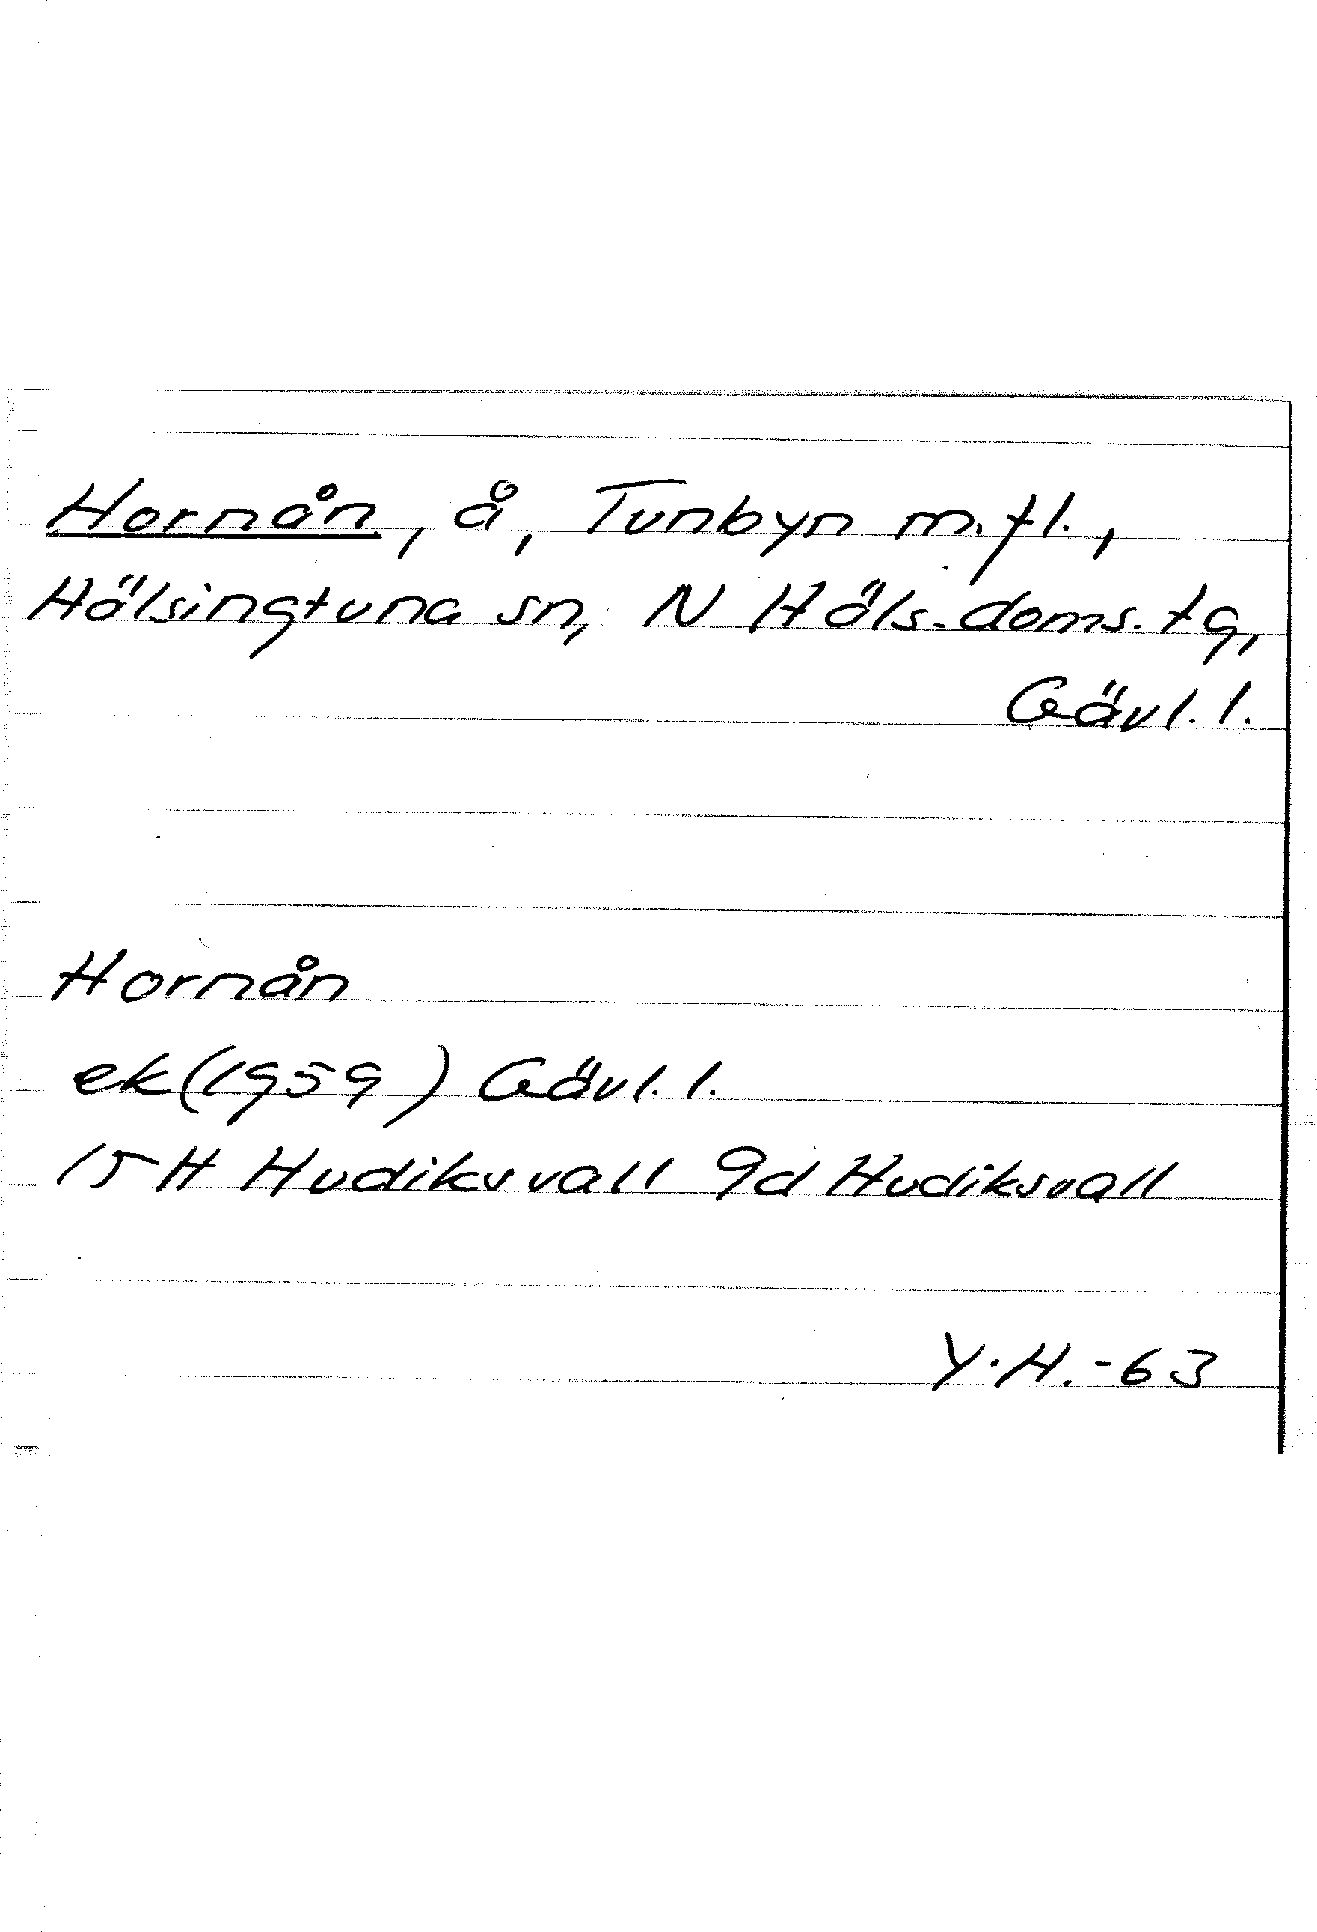 Hornån, å, Tunbyn m.fl.,
Hälsingtuna sn, N Häls. doms. tg,
Gävl. l.
Hornån
ek (1959) Gävl. l.
15 H Hudiksvall 9d Hudiksvall
Y.H.-63